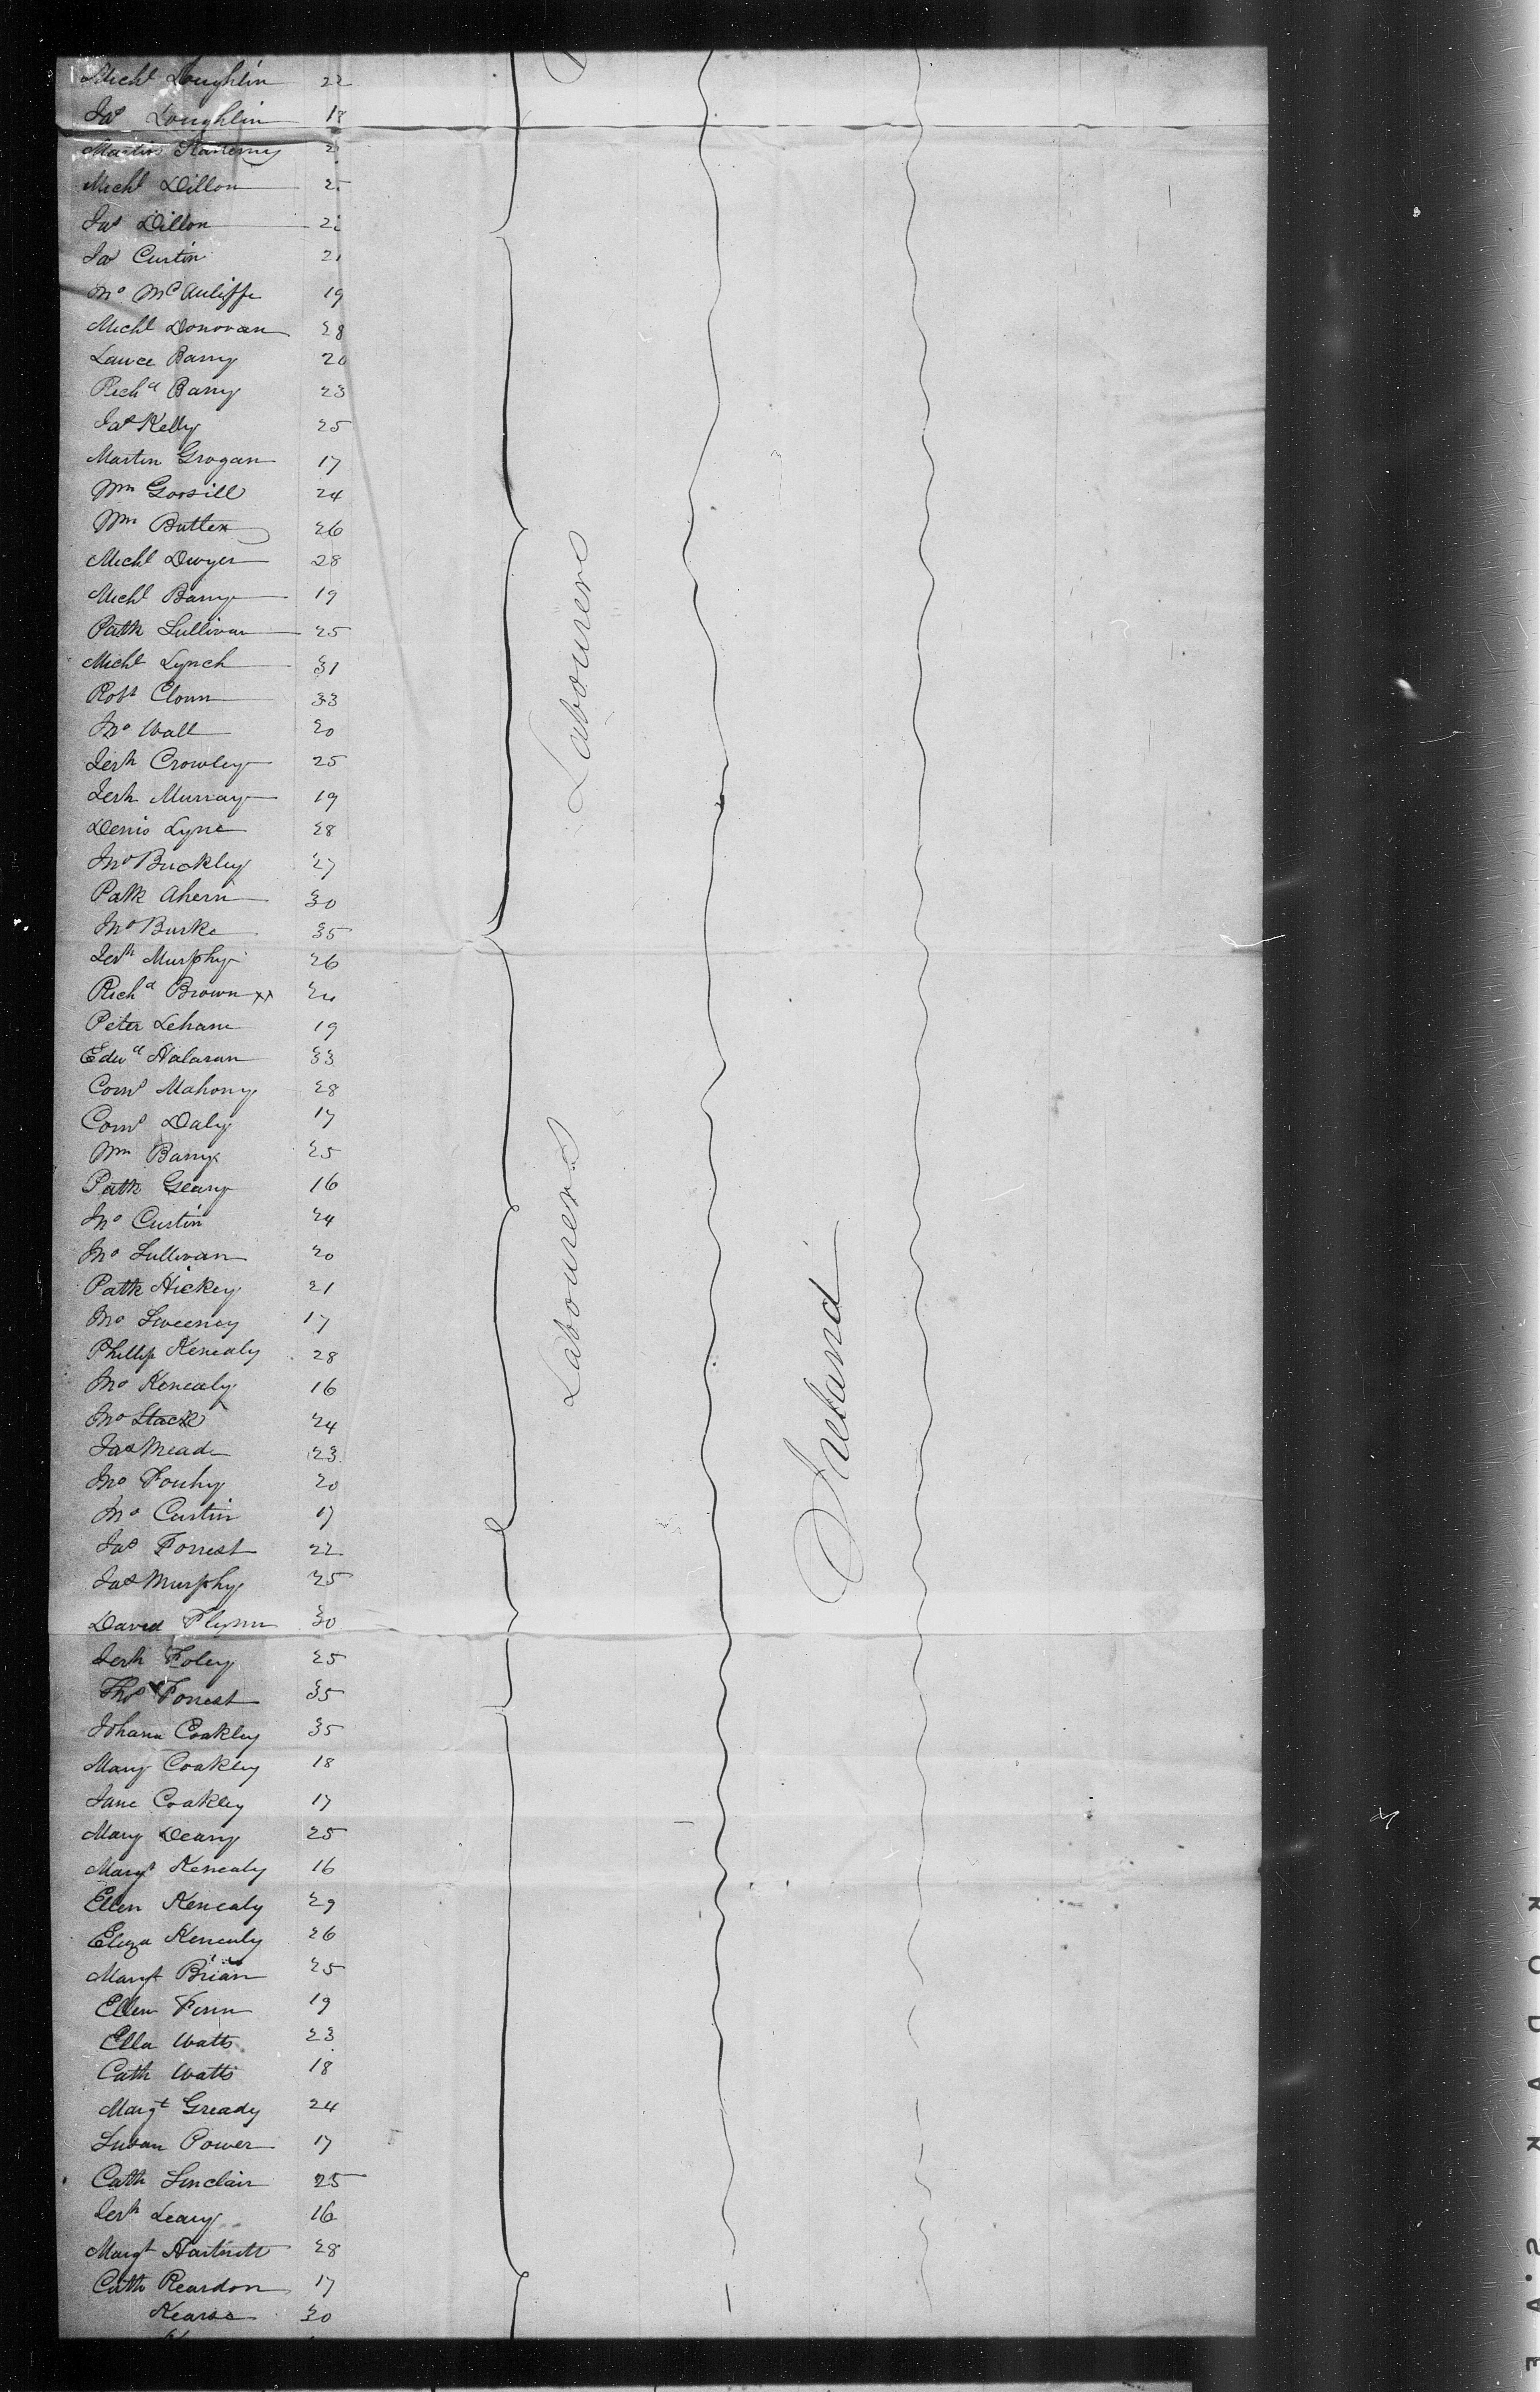 Michl Loughlin 22
Jas Loughlin 18
Martin
Michl Dillon
Jas Dillon
Jas Curtin 21
Jno McAuliffe 19
Michl Donovan 28
Lance Barry 20
Richd Barry 23
Jas Kelly 25
Martin Grogan 17
Wm Gossill 24
Wm Butler 26
Michl Dwyer 28
Michl Barry 19
Patk Sullivan 25
Michl Lynch 31
Robt Clonn 33
Jno Wall 20
Jerh Crowley 25
Jerh Murray 19
Denis Lyne 28
Jno Buckley 27
Patk Ahern 30
Jno Burke 35
Jerh Murphy 26
Richd Brown xx 24
Peter Lehane 19
Edwd Halaran 33
Corns Mahony 28
Corns Daly 17
Wm Barry 25
Patk Geary 16
Jno Curtin 24
Jno Sullivan 20
Patk Hickey 21
Jno Sweeney 17
Phillip Kenealy 28
Jno Kenealy 16
Jno Stack 24
Jas Meade 23
Jno Fouhy 20
Jno Curtin 17
Jas Forrest 22
Jas Murphy 25
David Flynn 30
Jerh Foley 25
Thos Forrest 35
Johana Coakley 35
Mary Coakley 18
Jane Coakley 17
Mary Deany 25
Margt Kenealy 16
Ellen Kenealy 29
Eliza Kenealy 26
Margt Brian 25
Ellen Finn 19
Ella Watts 23
Cath Watts 18
Margt Gready 24
Susan Power 17
Cath Sinclair 25
Jerh Leary 16
Margt Hartnett 28
Cath Reardon 17
Kearse 30
Labourers
Labourers
Ireland
KODAK S.AFE